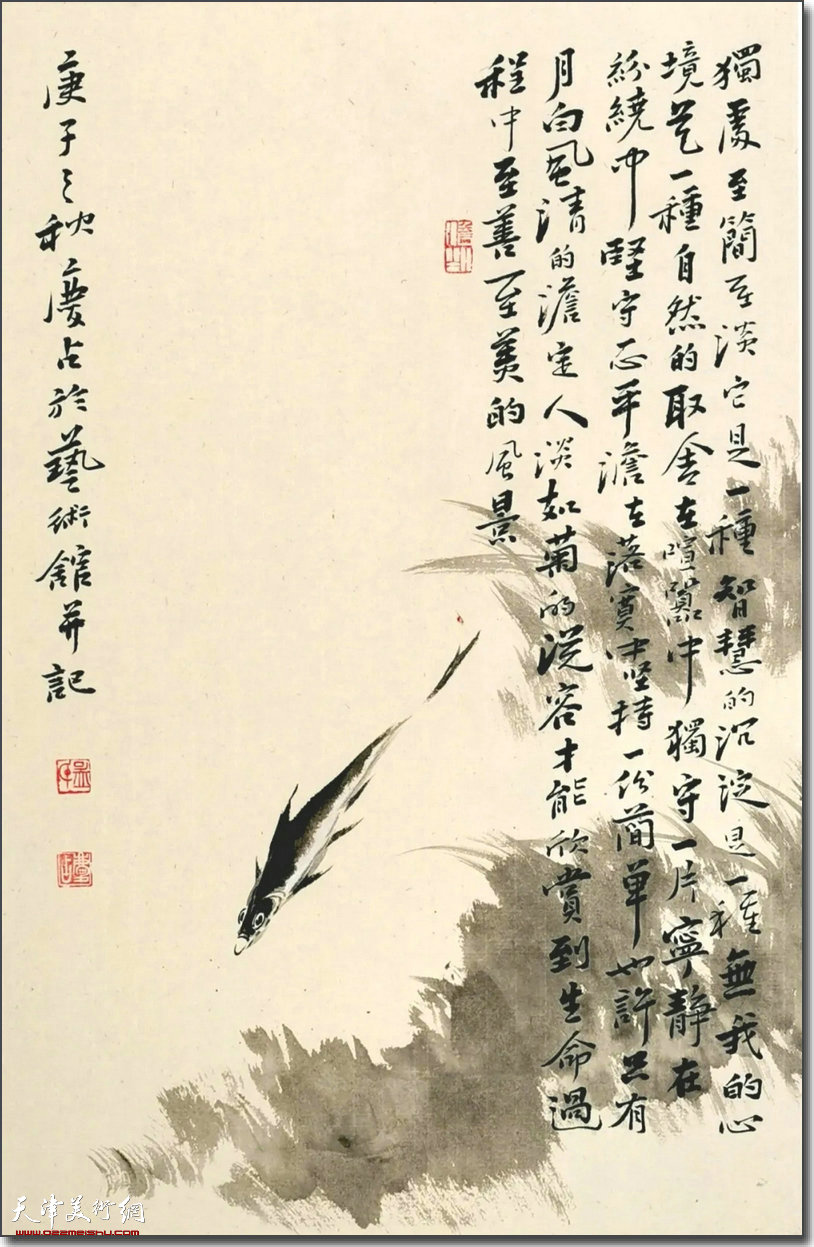 獨處至簡至淡它是一種智慧的沉淀是一種無我的心
境是一種自然的取舍在喧囂中獨守一片寧靜在
紛繞中堅守正平澹在落寞中坚持一份簡單也許只有
月白風清的澹定人淡如菊的從容才能欣賞到生命過
程中至善至美的風景
庚子之秋慶占於藝術館并記
天津美術網
www.022meishu.com